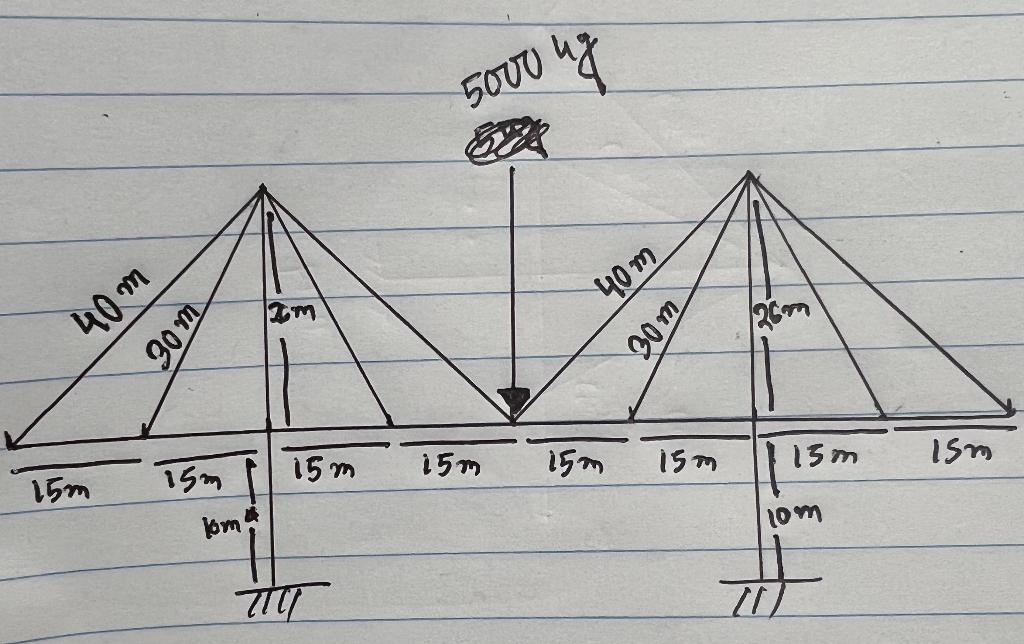 5000 kg
40 m
30 m
26m
40 m
30 m
26m
15m
15m
15m
15m
15m
15m
15m
15m
10m
10m